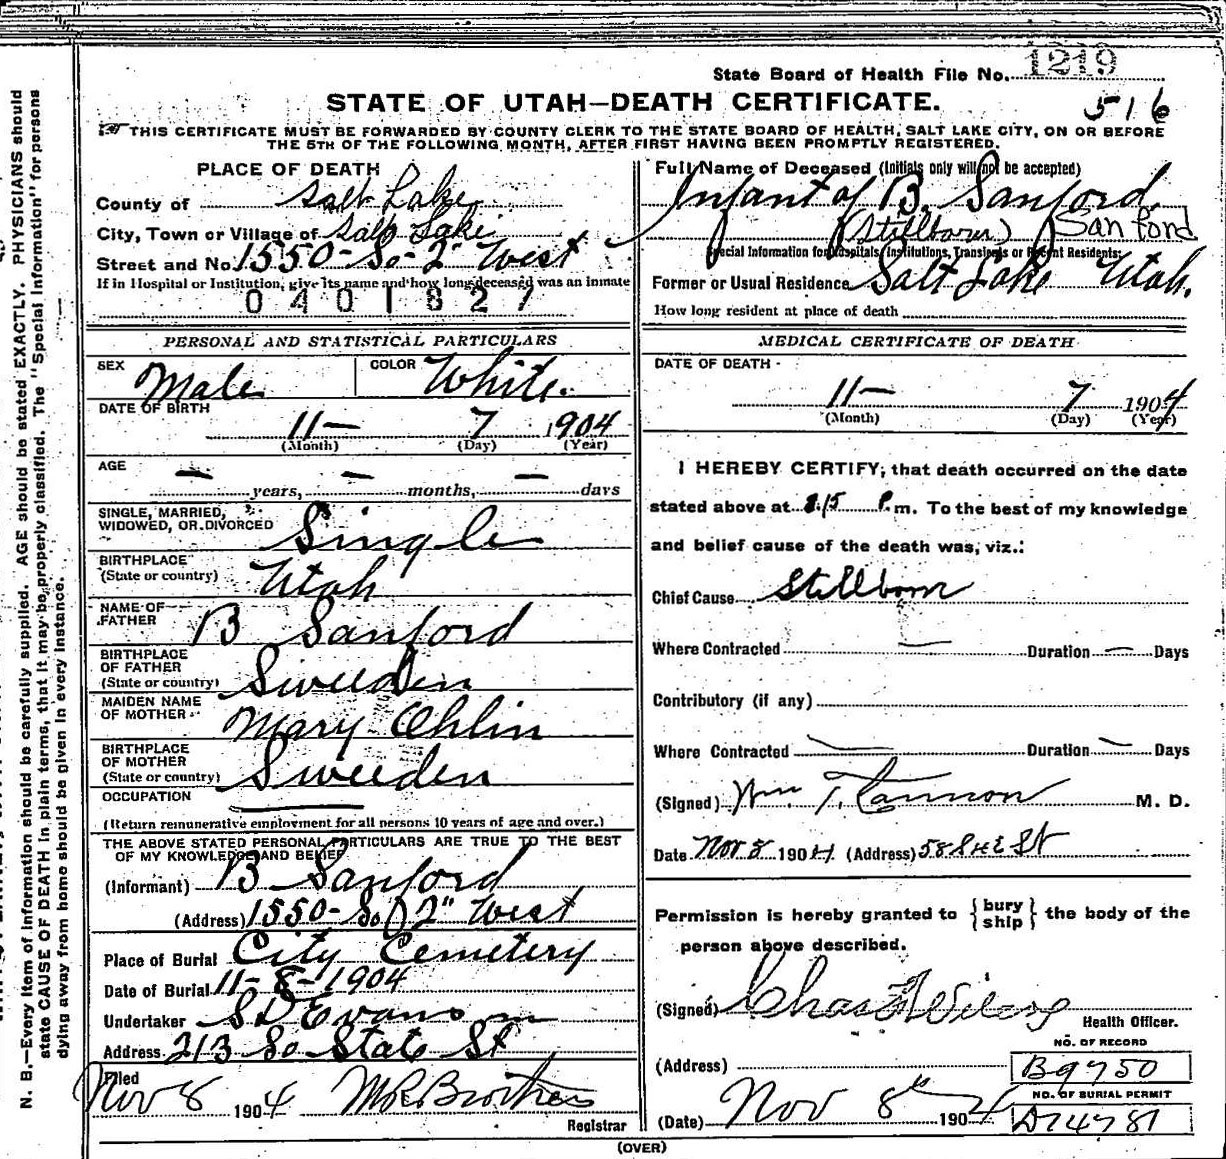 State Board of Health File No. 1219
STATE OF UTAH—DEATH CERTIFICATE.
516
THIS CERTIFICATE MUST BE FORWARDED BY COUNTY CLERK TO THE STATE BOARD OF HEALTH, SALT LAKE CITY, ON OR BEFORE
THE 5TH OF THE FOLLOWING MONTH, AFTER FIRST HAVING BEEN PROMPTLY REGISTERED.
PLACE OF DEATH
County of Salt Lake
City, Town or Village of Salt Lake
Street and No. 1550- So- 2" West
If in Hospital or Institution, give its name and how long deceased was an inmate
0401827
Full Name of Deceased (Initials only will not be accepted)
Infant of B. Sanford.
(Stillborn) Sanford
Special Information for Hospitals, Institutions, Transients or Recent Residents:
Former or Usual Residence Salt Lake Utah.
How long resident at place of death
PERSONAL AND STATISTICAL PARTICULARS
SEX Male COLOR White.
DATE OF BIRTH
11- 7 1904
(Month) (Day) (Year)
AGE
— years, — months, — days
SINGLE, MARRIED,
WIDOWED, OR DIVORCED Single
BIRTHPLACE
(State or country) Utah
NAME OF
FATHER B Sanford
BIRTHPLACE
OF FATHER
(State or country) Sweeden
MAIDEN NAME
OF MOTHER Mary Ohlin
BIRTHPLACE
OF MOTHER
(State or country) Sweeden
OCCUPATION
(Return remunerative employment for all persons 10 years of age and over.)
THE ABOVE STATED PERSONAL PARTICULARS ARE TRUE TO THE BEST
OF MY KNOWLEDGE AND BELIEF
(Informant) B Sanford
(Address) 1550- So 2" West
Place of Burial City Cemetery
Date of Burial 11-8-1904
Undertaker S D Evans
Address 213 So State St
Filed
Nov 8 1904
Registrar
MEDICAL CERTIFICATE OF DEATH
DATE OF DEATH
11- 7 1904
(Month) (Day) (Year)
I HEREBY CERTIFY, that death occurred on the date
stated above at 8.15 P.m. To the best of my knowledge
and belief cause of the death was, viz.:
Chief Cause Stillborn
Where Contracted — Duration — Days
Contributory (if any)
Where Contracted — Duration — Days
(Signed) Wm T. Cannon M. D.
Date Nov 8 1904 (Address) 58 S 4 E St
Permission is hereby granted to {bury
ship} the body of the
person above described.
(Signed) Chas
Health Officer.
NO. OF RECORD
(Address) B9750
NO. OF BURIAL PERMIT
(Date) Nov 8th 1904 D74781
(OVER)
N. B.—Every item of information should be carefully supplied. AGE should be stated EXACTLY. PHYSICIANS should
state CAUSE OF DEATH in plain terms, that it may be properly classified. The "Special Information" for persons
dying away from home should be given in every instance.